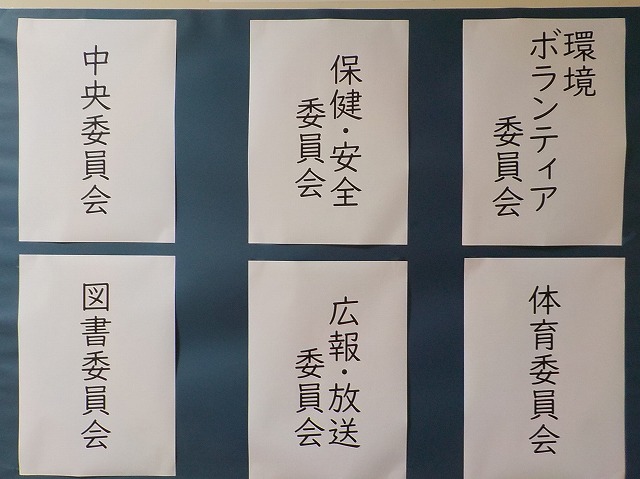 中央委員会
保健・安全
委員会
環境
ボランティア
委員会
図書委員会
広報・放送
委員会
体育委員会